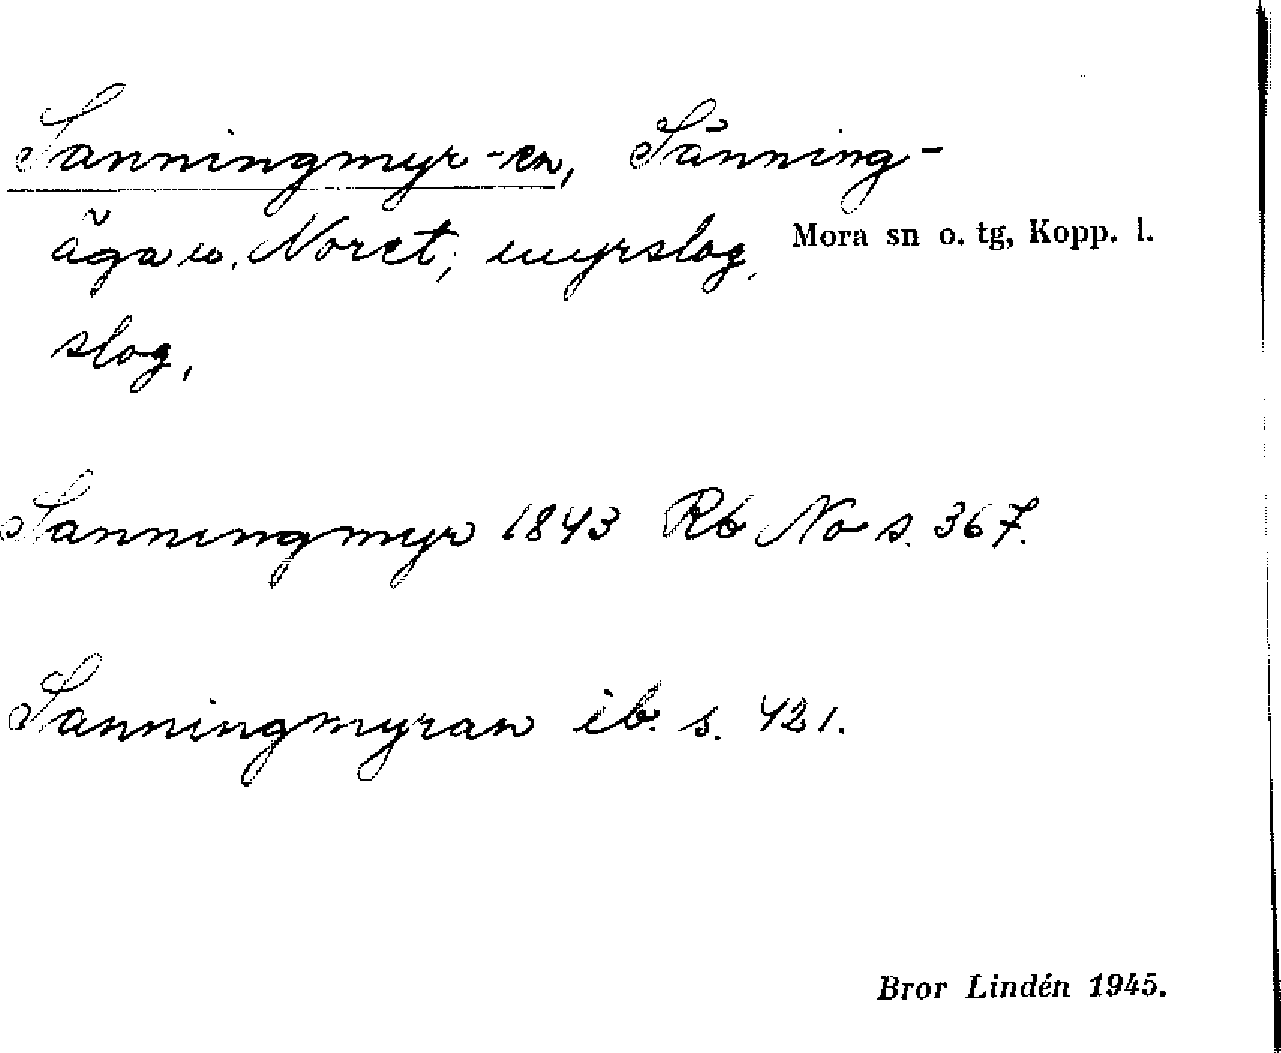 Sanningmyr -en, Sänning-
äga w. Noret; myrslog,
Mora sn o. tg, Kopp. l.
slog,
Sanningmyr 1843 Rb No s. 367.
Sanningmyran ib. s. 421.
Bror Lindén 1945.